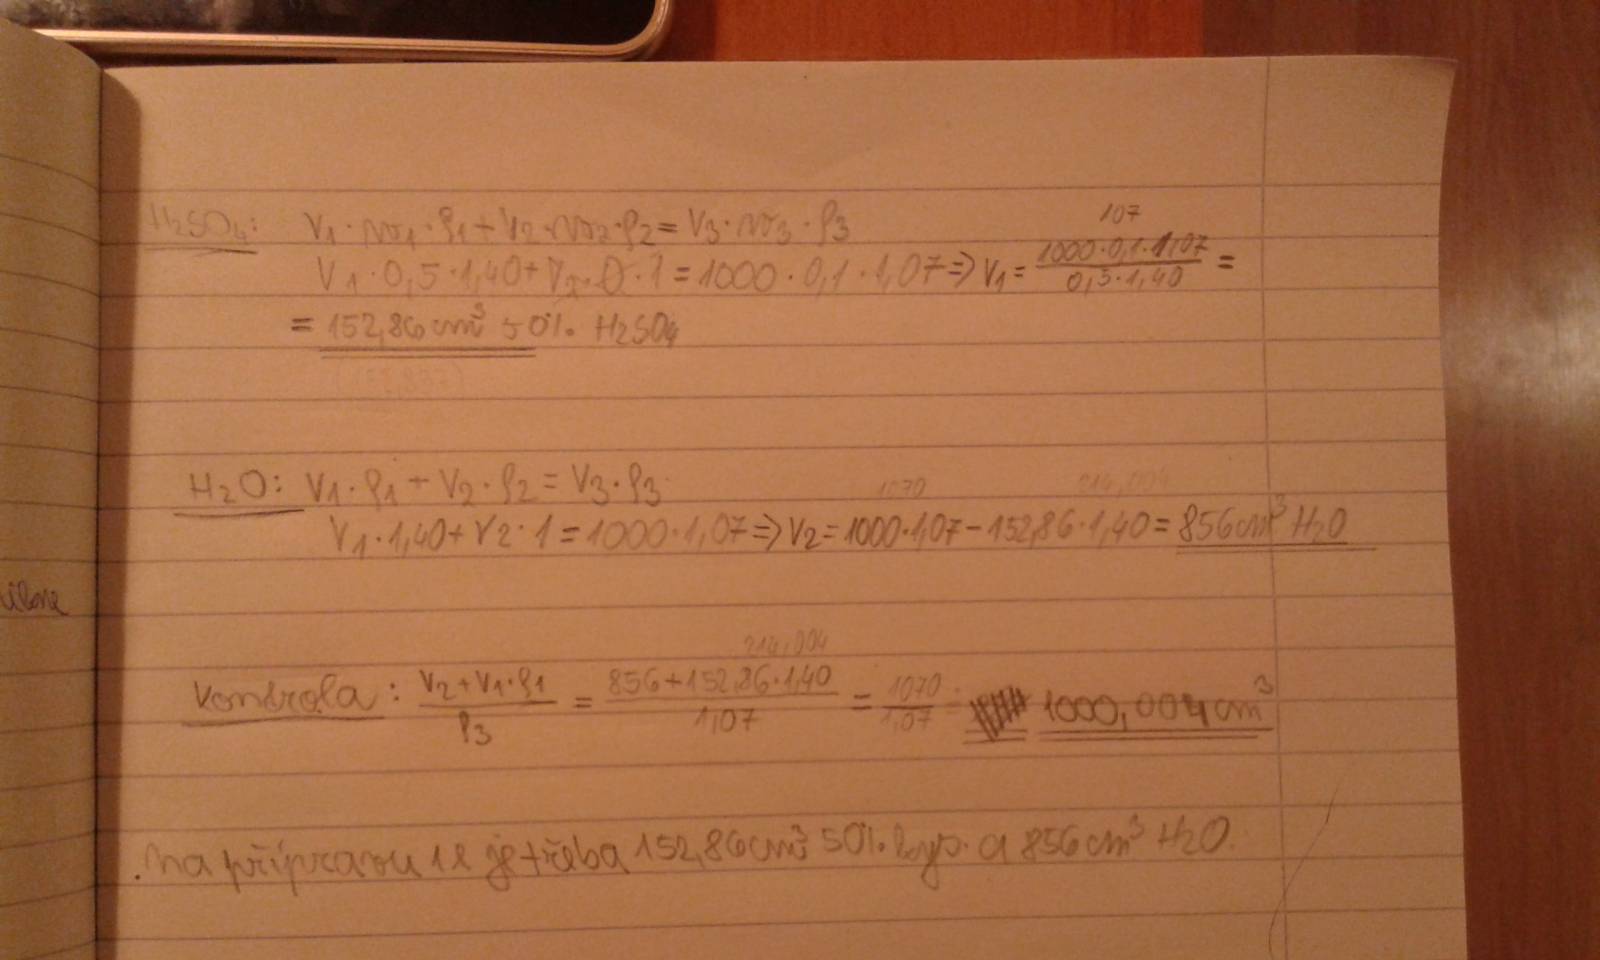 107
H2SO4: V1·w1·ρ1+V2·w2·ρ2=V3·w3·ρ3
V1·0,5·1,40+V2·0·1=1000·0,1·1,07=>V1=1000·0,1·1,07/0,5·1,40=
=152,86cm³ 50%. H2SO4
1070 214,004
H2O: V1·ρ1+V2·ρ2=V3·ρ3
V1·1,40+V2·1=1000·1,07=>V2=1000·1,07-152,86·1,40=856cm³ H2O
214,004
Kontrola: V2+V1·ρ1/ρ3 = 856+152,86·1,40/1,07 = 1070/1,07 = 1000,004cm³
Na přípravu 1l je třeba 152,86cm³ 50%. kys. a 856cm³ H2O.